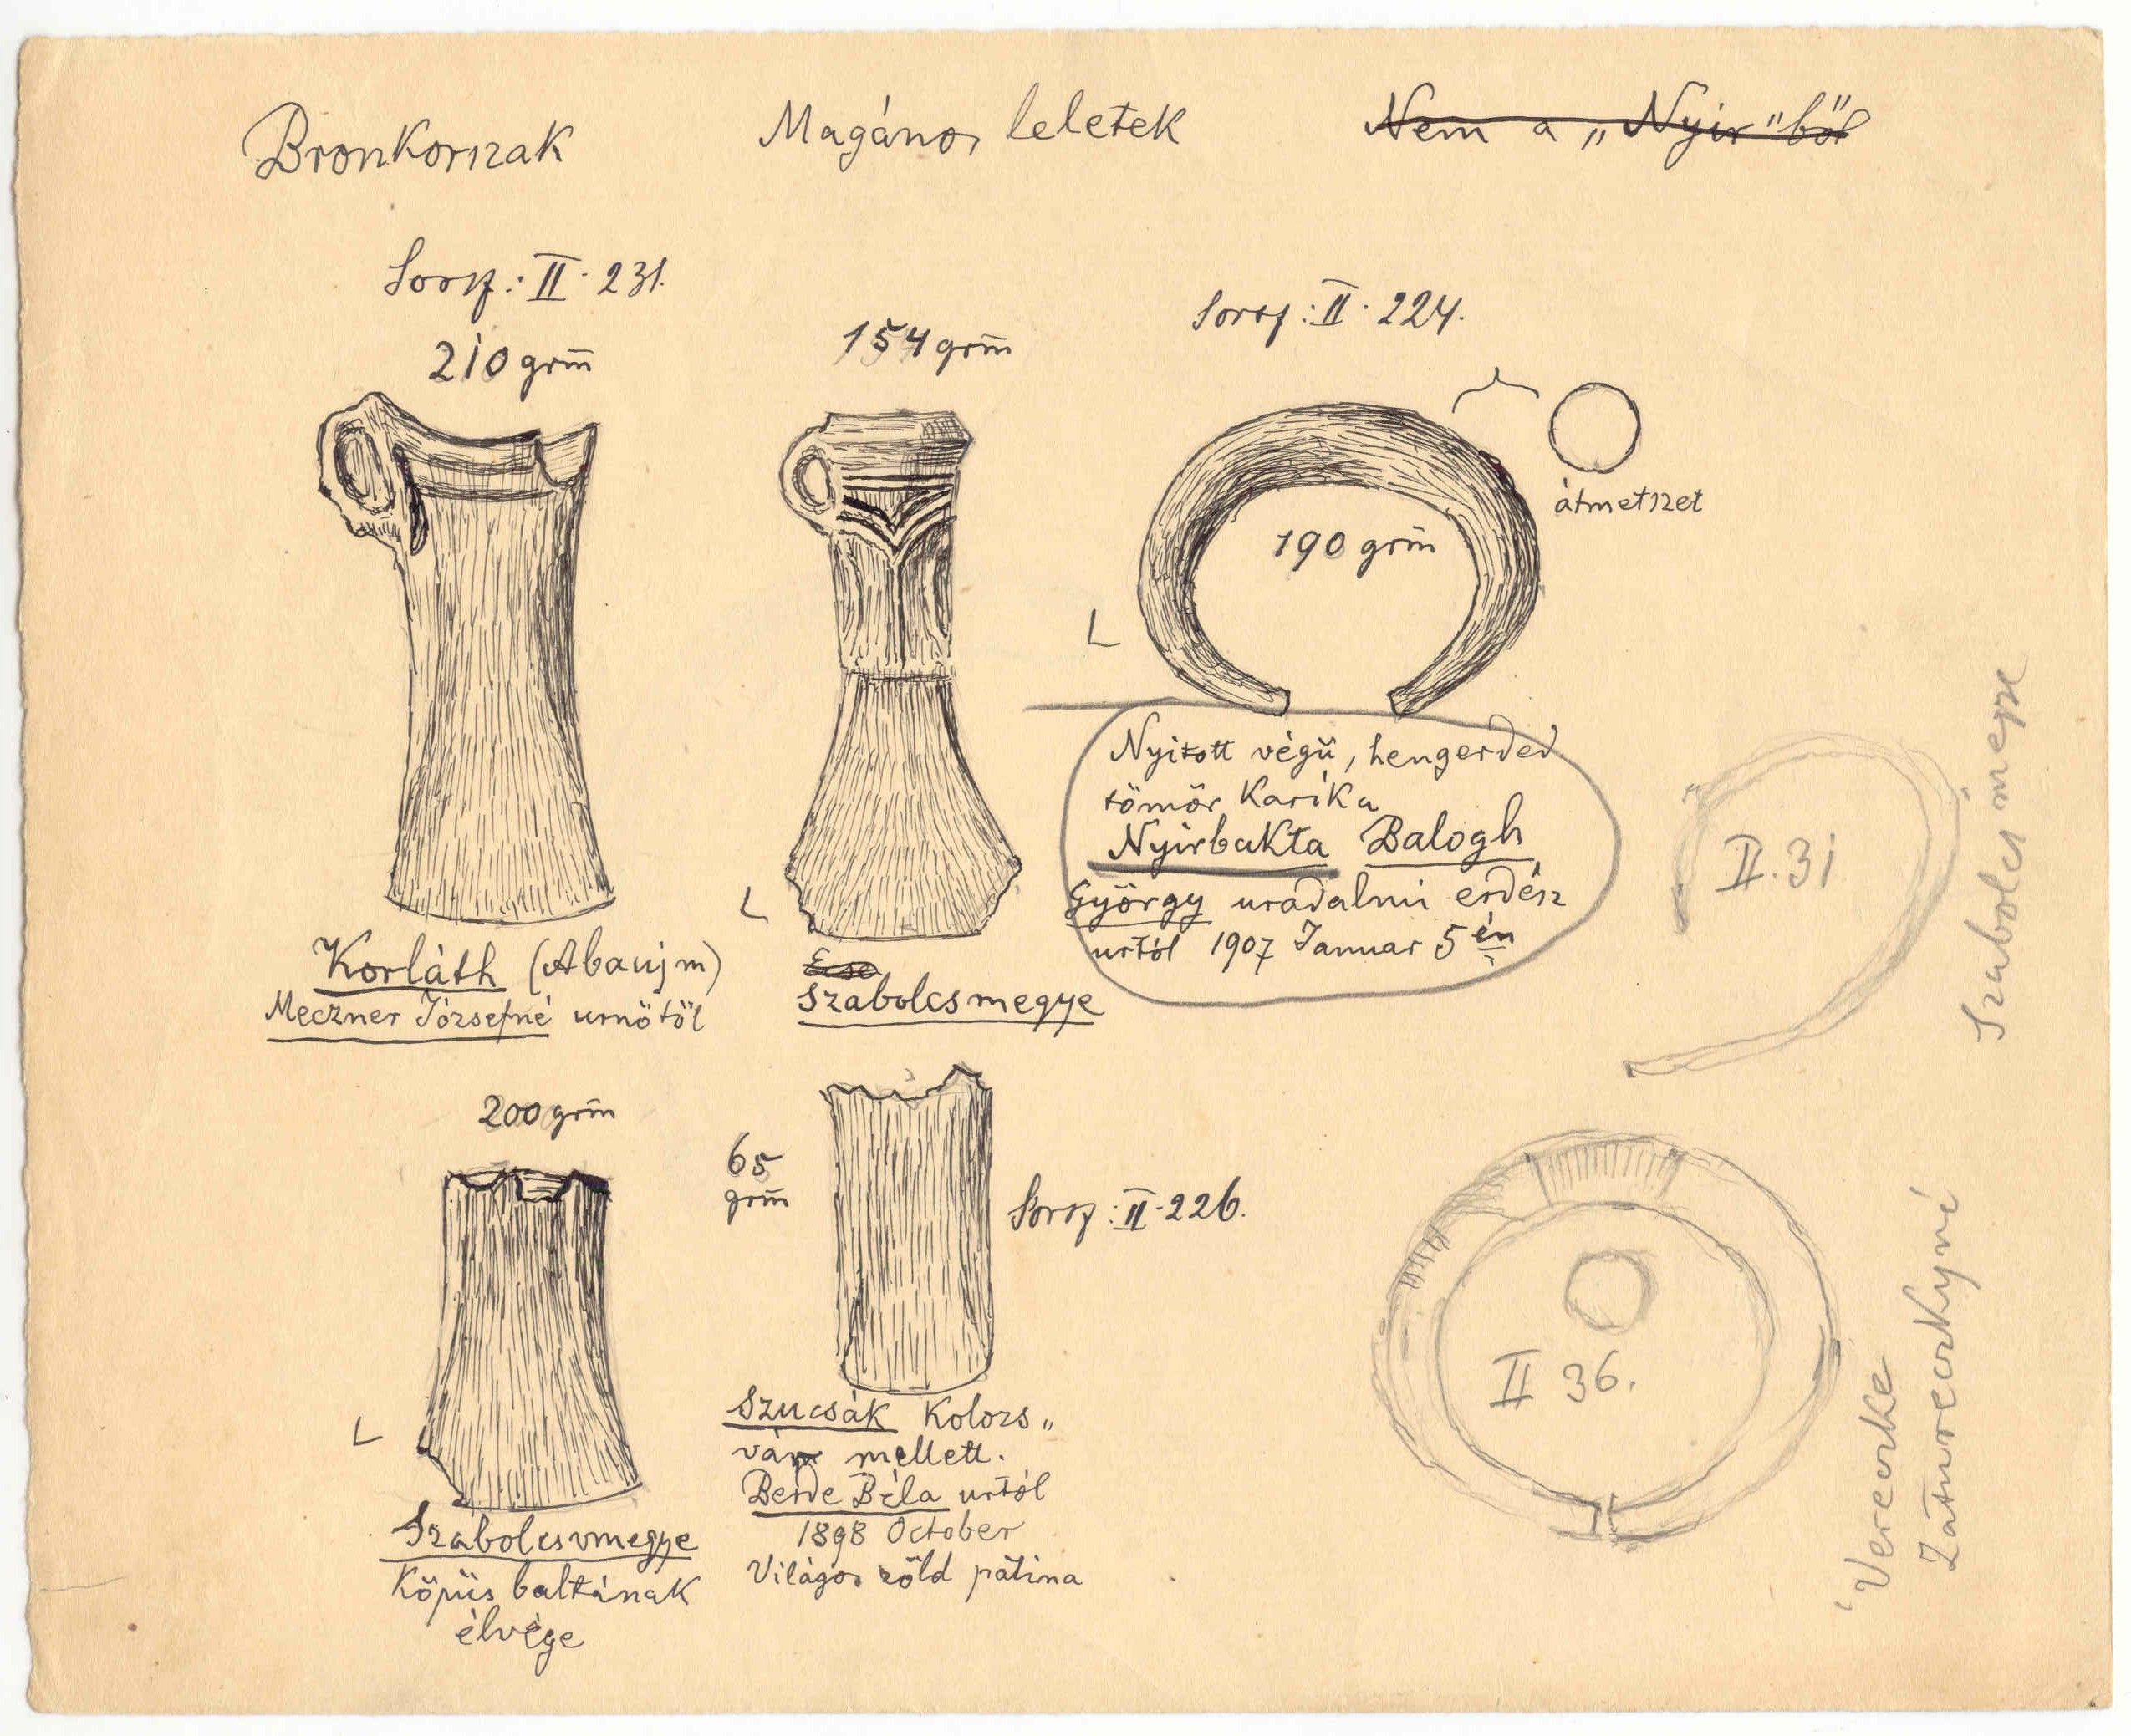 Bronkorszak
Magános leletek
Nem a „Nyir"ből
Sorsz: II. 231.
210 grm
154 grm
Sorsz: II. 224.
átmetszet
190 grm
L
Nyitott végű, hengerded
tömör karika
Nyirbakta Balogh
György uradalmi erdész
urtól 1907 Januar 5 én
L
Korláth (Abaujm)
Meczner Józsefné urnőtől
Szabolcsmegye
II. 31
Szabolcs megye
200 grm
65
grm
Sorsz: II. 226.
L
Szabolcsvmegye
Köpüs baltának
élvége
Szucsák Kolozs„
vár mellett.
Berde Béla urtól
1898 October
Világos zöld patina
II 36.
Vereczke
Zatureczkyné